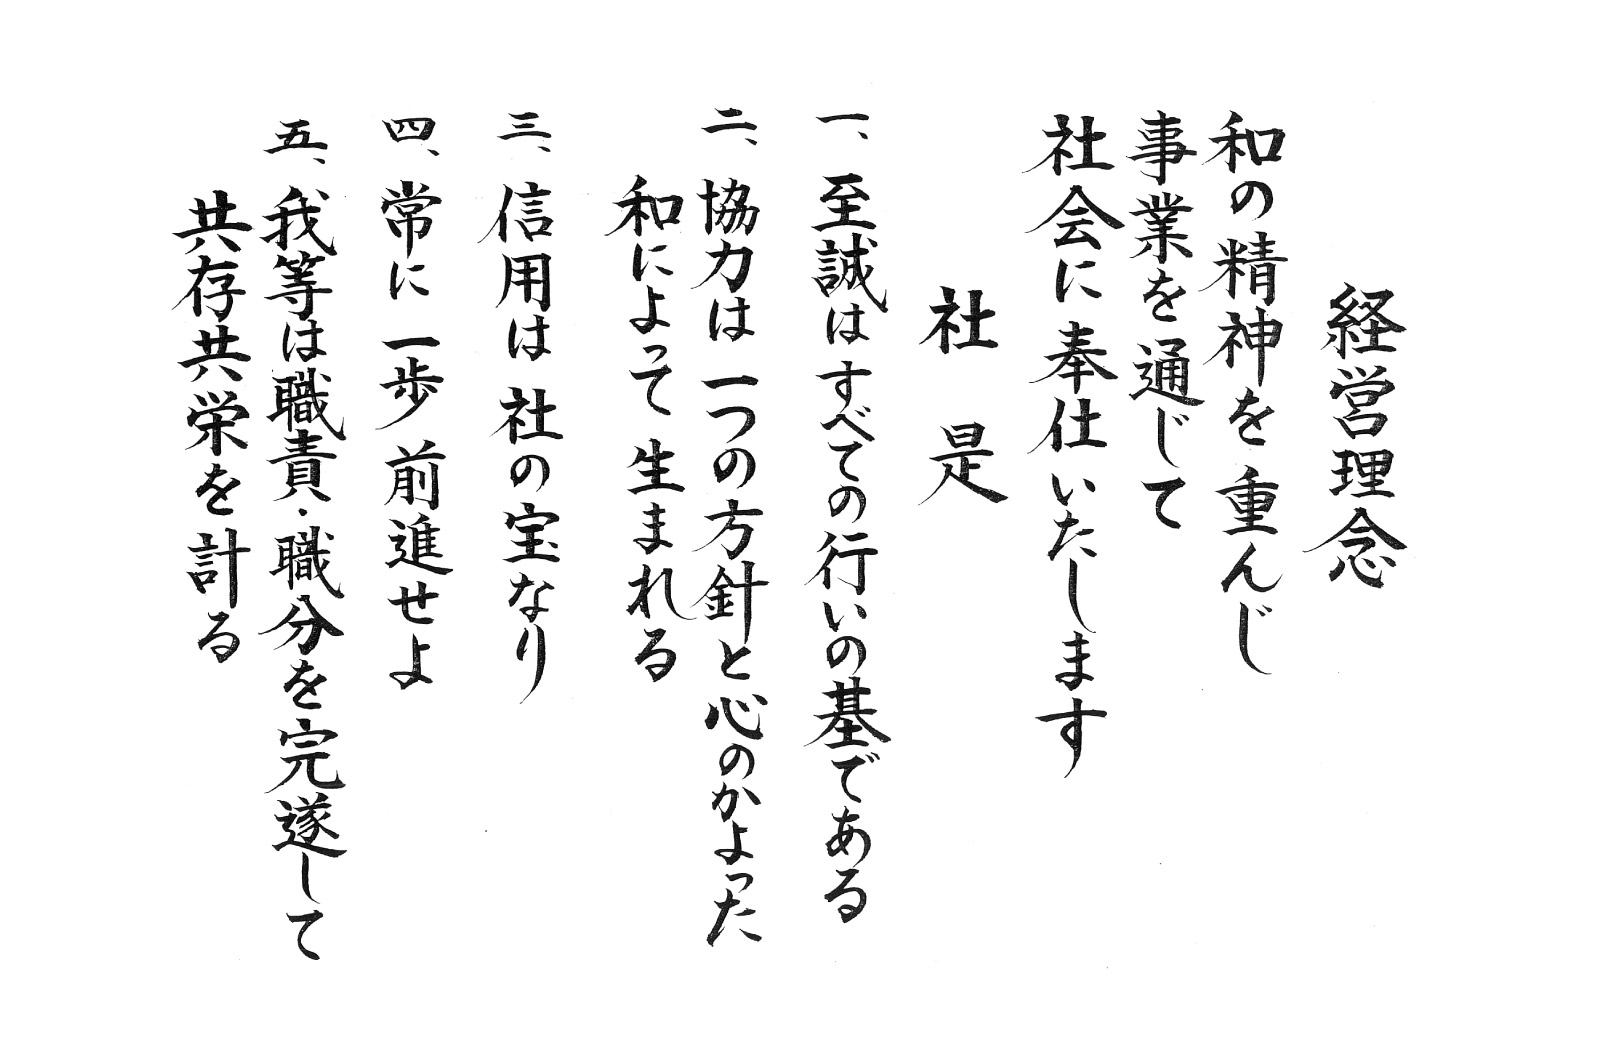 経営理念
和の精神を重んじ
事業を通じて
社会に奉仕いたします
社是
一、至誠はすべての行いの基である
二、協力は一つの方針と心のかよった
和によって生まれる
三、信用は社の宝なり
四、常に一歩前進せよ
五、我等は職責・職分を完遂して
共存共栄を計る